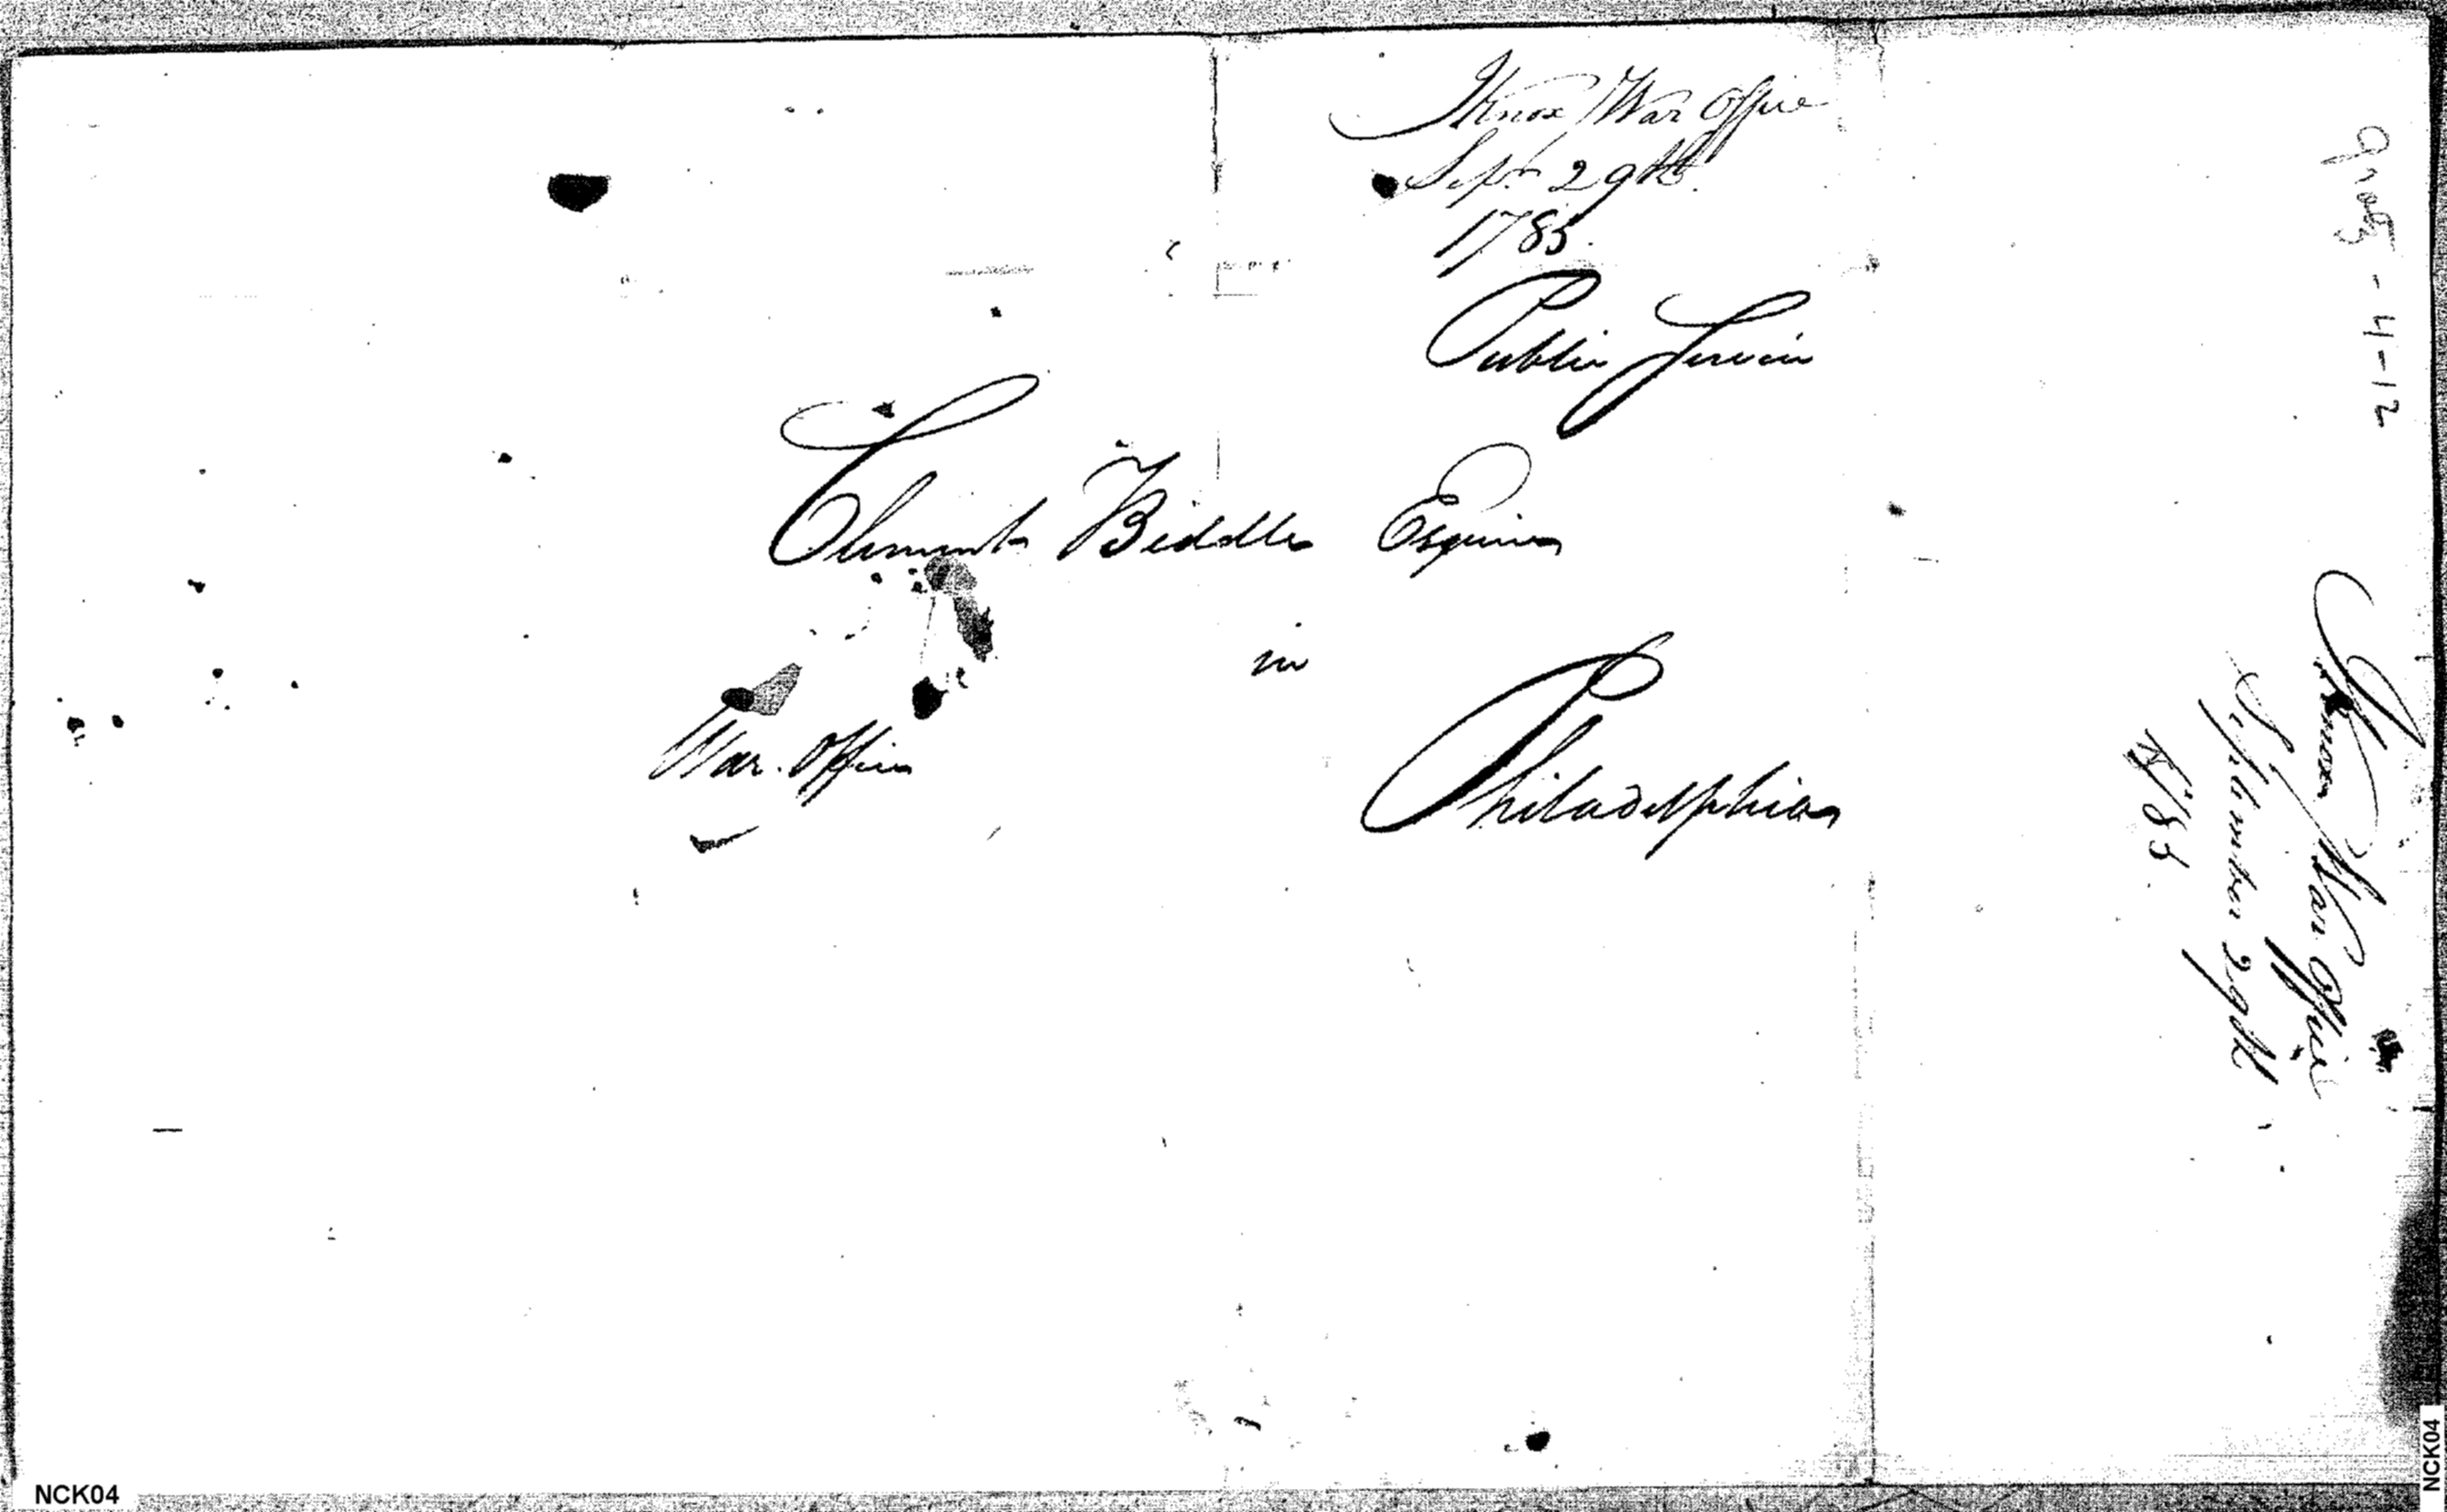 H Knox War Office
Sept. 29th.
1785.
Public Service
Clement Biddle Esquire
in
Philadelphia
War. Office
Gratz - 4-12
H Knox War Office
September 29th
1785
NCK04
NCK04